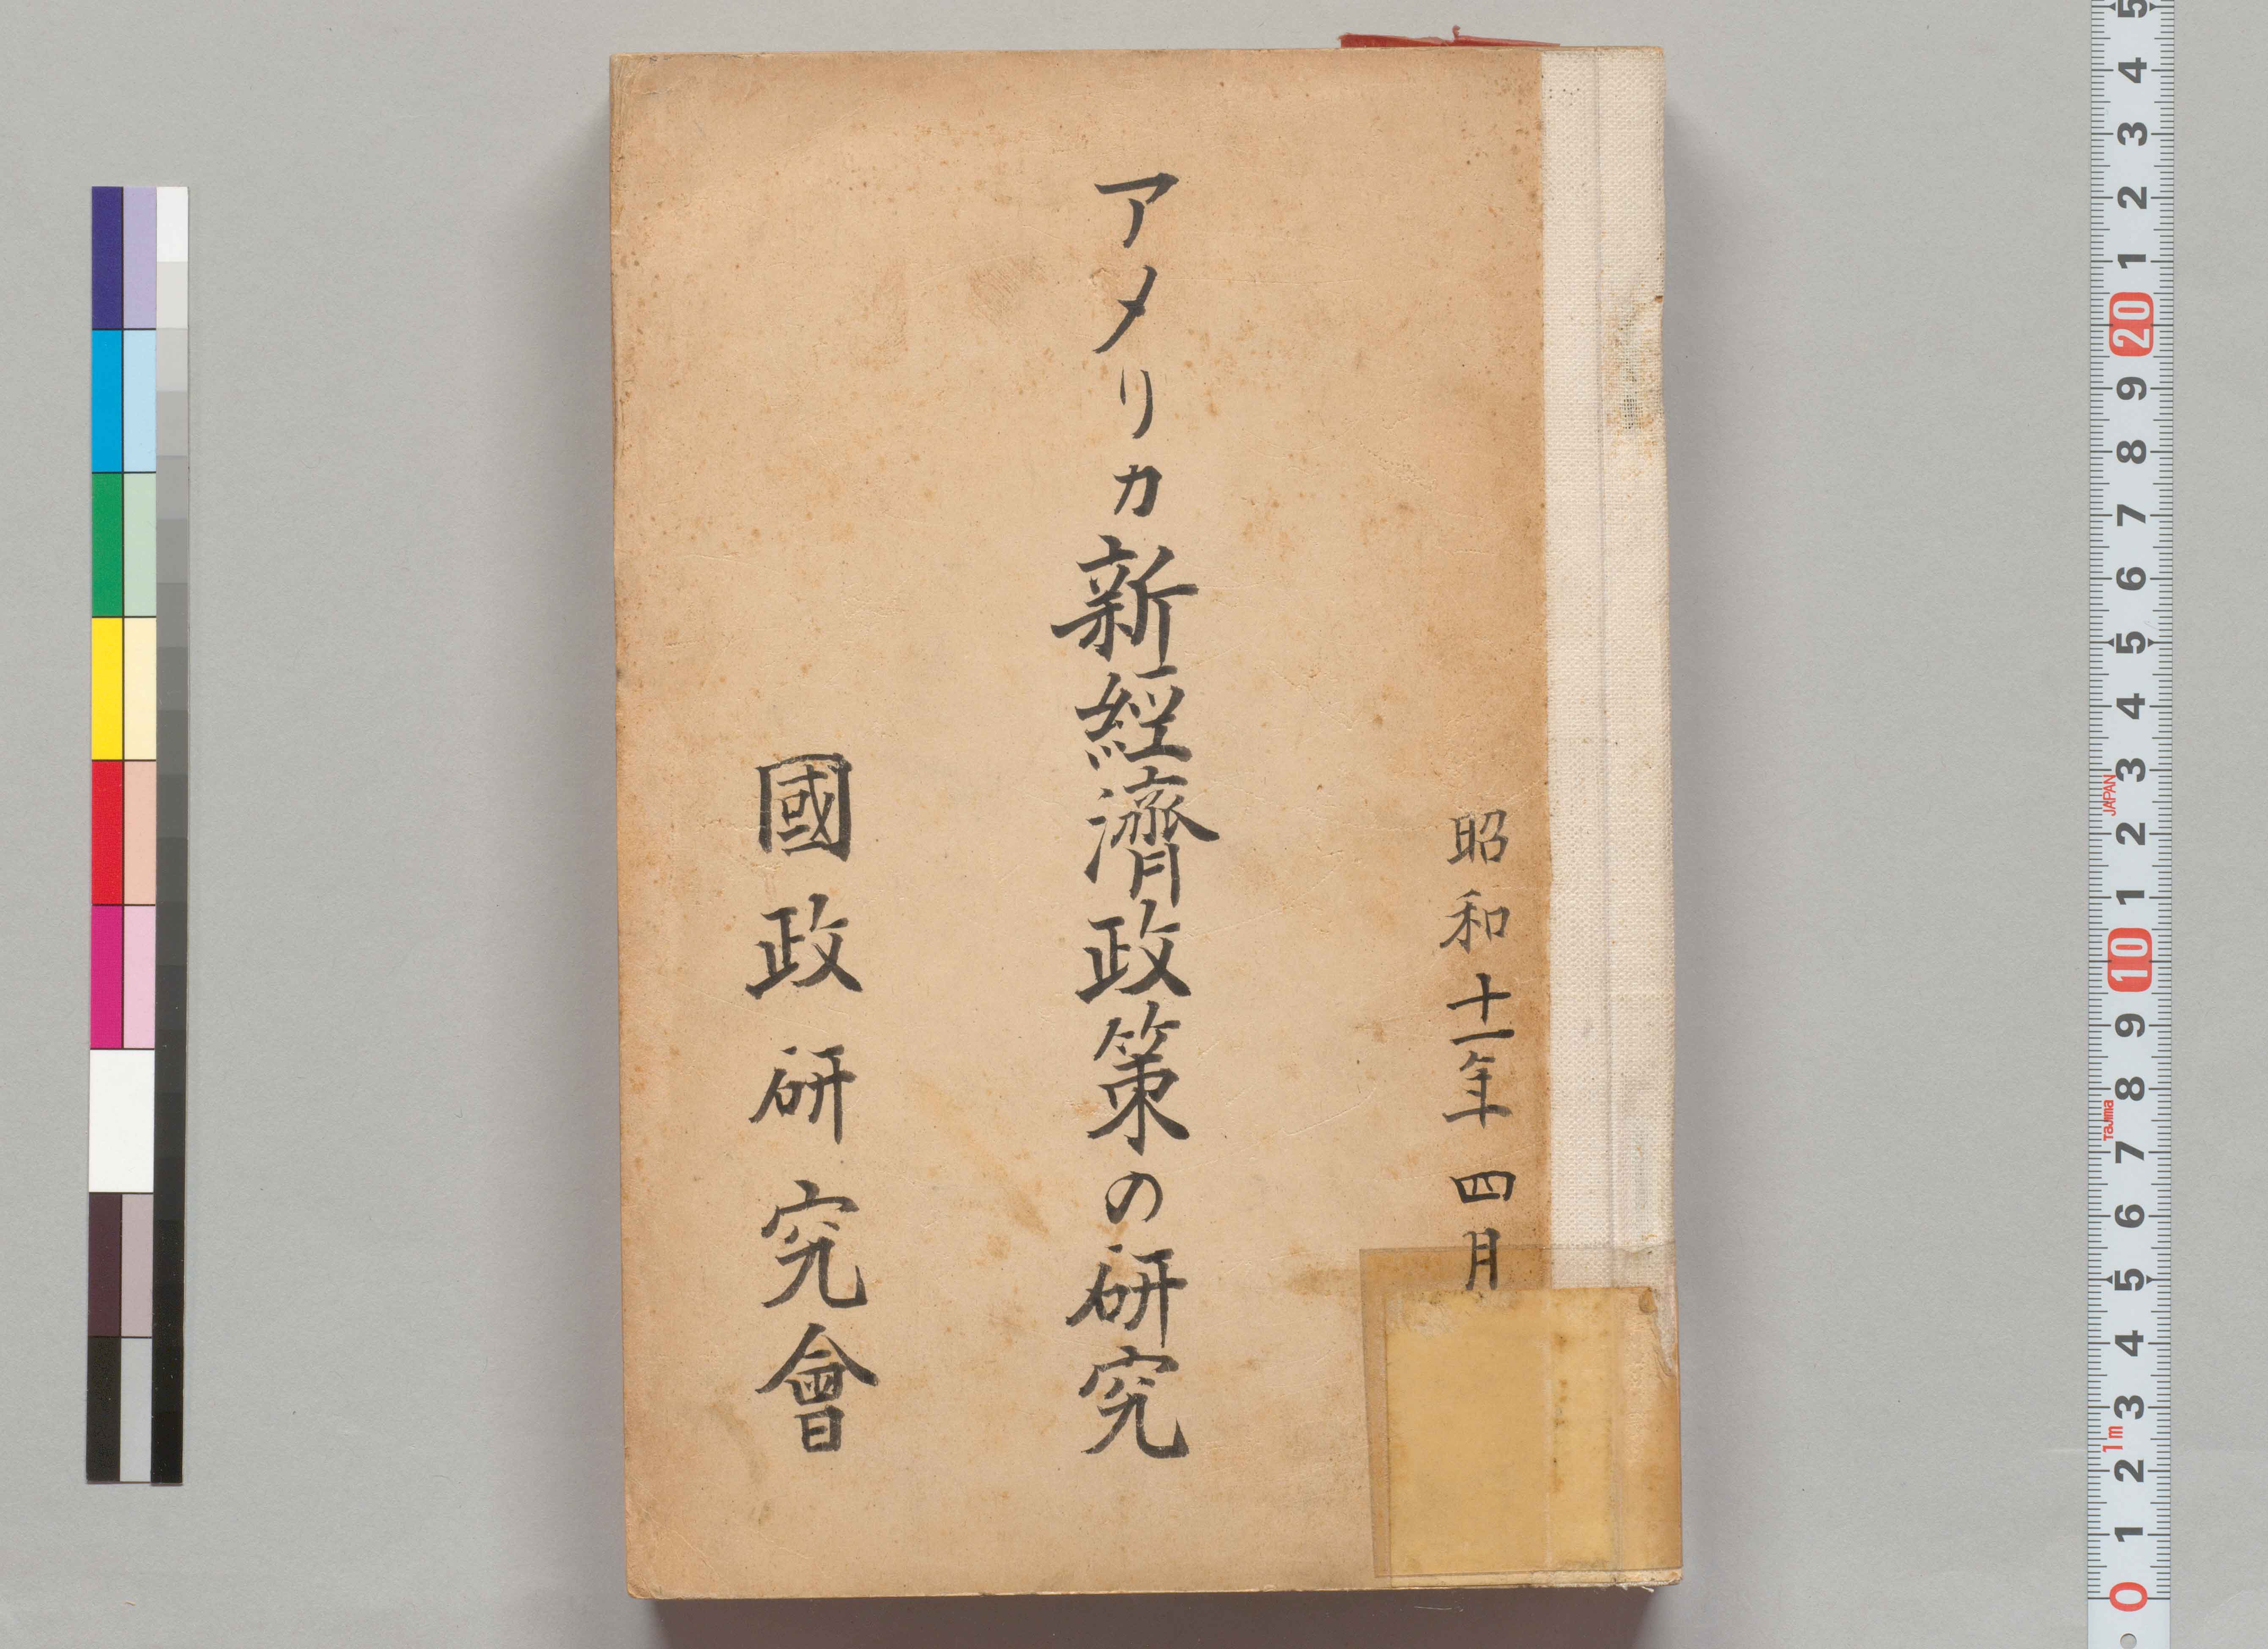 昭和十一年四月
アメリカ新経濟政策の研究
國政研究會
5
4
3
2
1
20
9
8
7
6
5
4
3
JAPAN
2
1
10
9
8
Tajima
7
6
5
4
3
1m
2
1
0